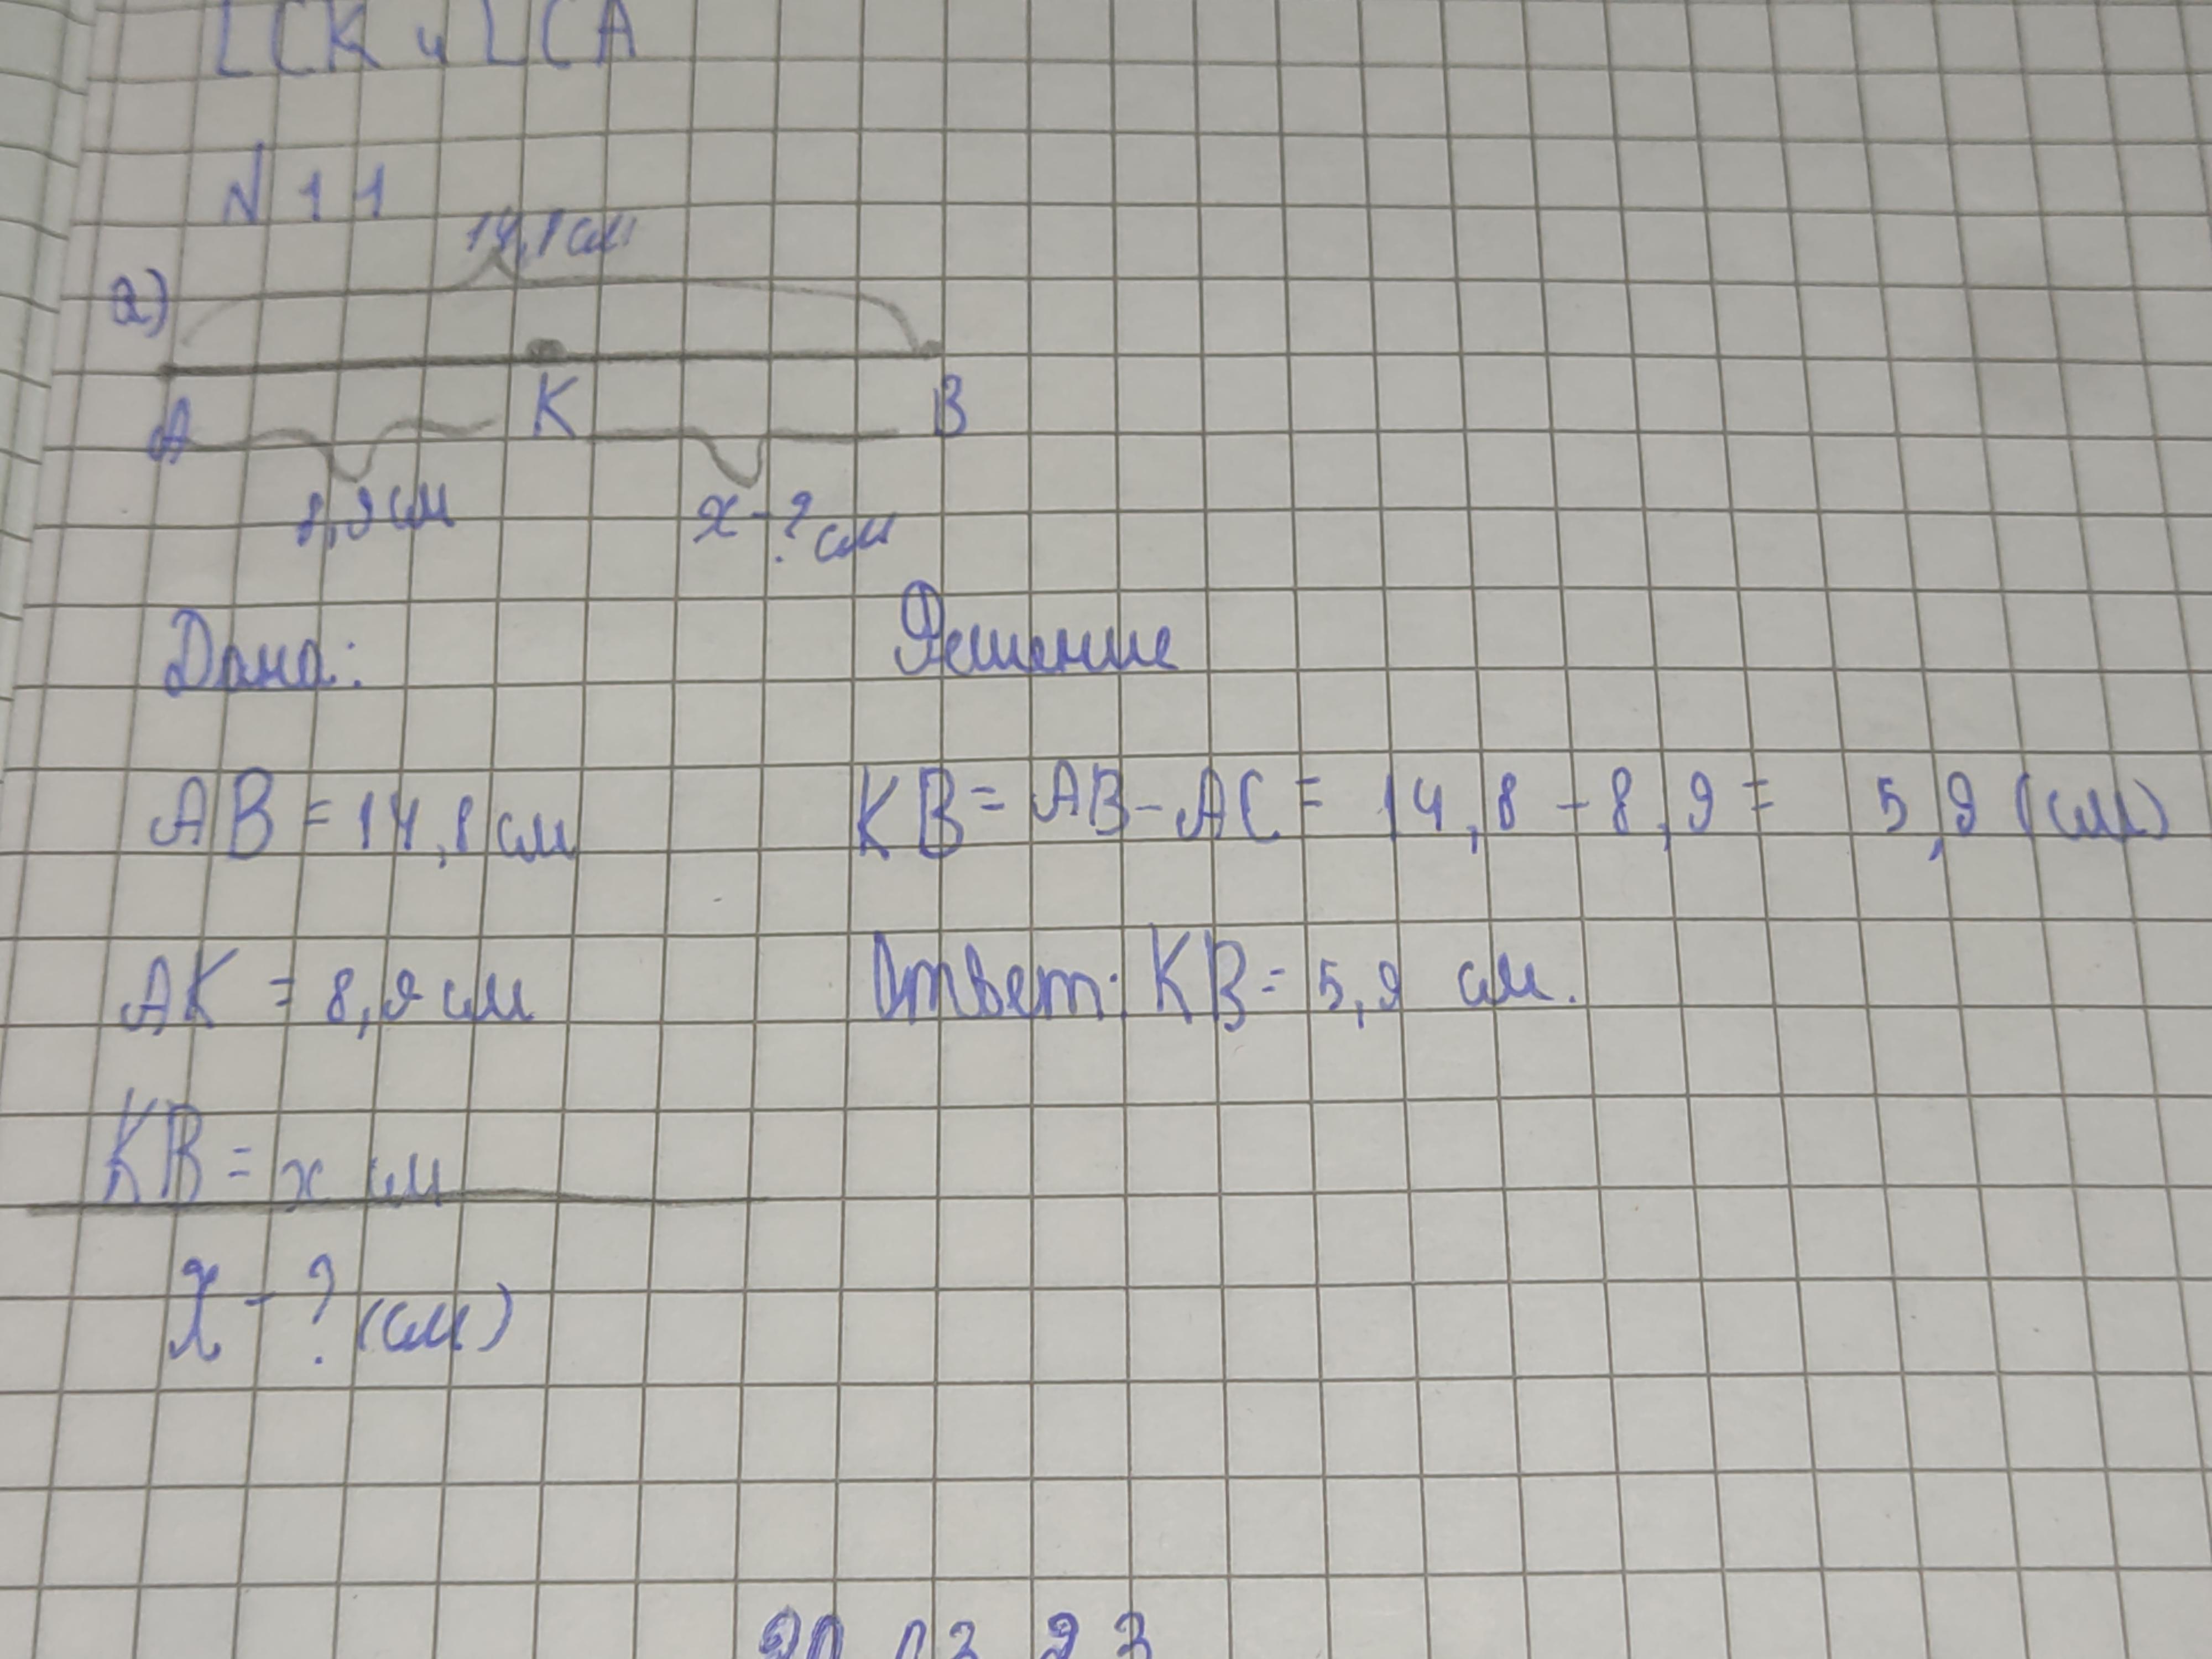 ∠CK и ∠CA
N 11
14,8 см
а)
A K B
8,9 см x-? см
Дано: Решение
AB = 14,8 см KB = AB - AC = 14,8 - 8,9 = 5,9 (см)
AK = 8,9 см Ответ: KB = 5,9 см.
KB = x см
x - ? (см)